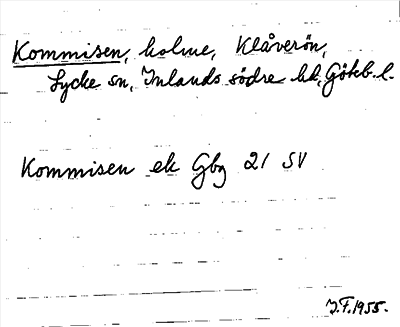 Kommisen, holme, Klåverön,
Lycke sn, Inlands södre hd, Götb. l.
Kommisen ek Gbg 21 SV
J.F. 1955.